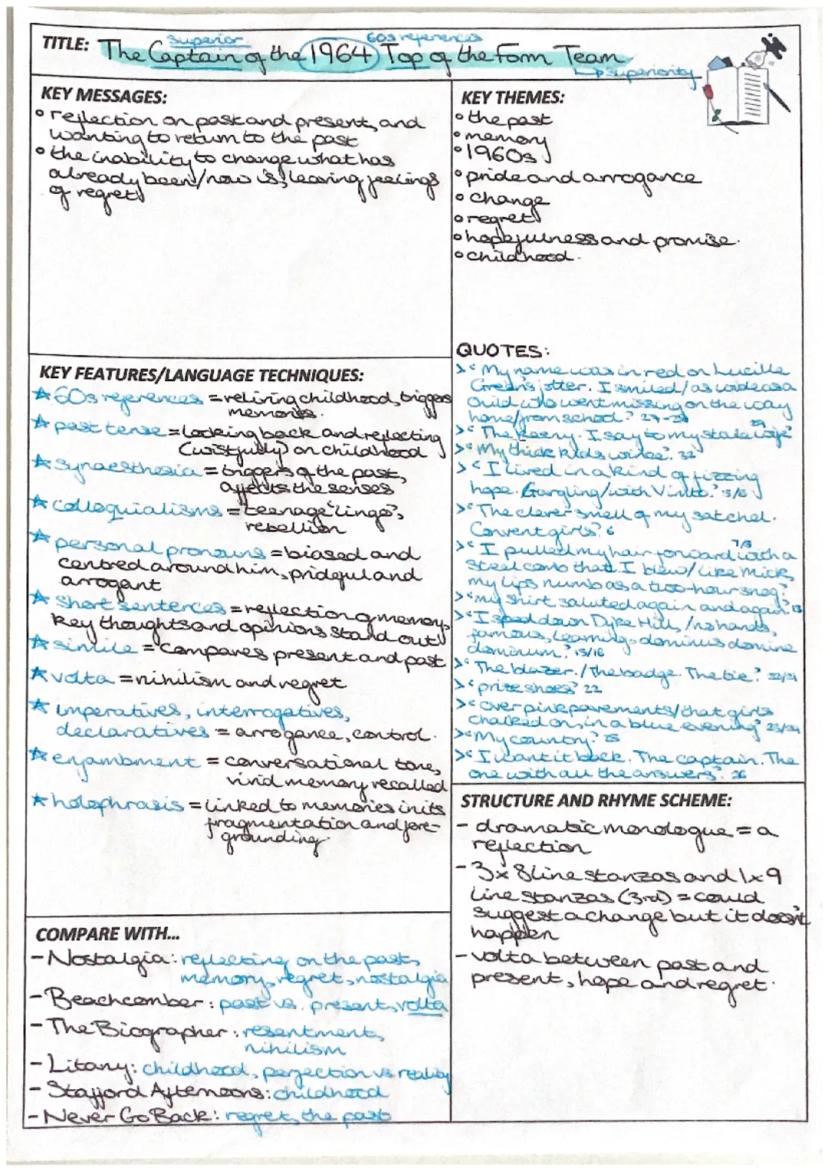 superior
60s references
TITLE: The Captain of the 1964 Top of the Form Team
↳superiority
KEY MESSAGES:
• reflection on past and present, and
wanting to return to the past
• the inability to change what has
already been/now is, leaving feelings
of regret
KEY THEMES:
• the past
• memory
• 1960s
• pride and arrogance
• change
• regret
• hopefulness and promise.
• childhood.
KEY FEATURES/LANGUAGE TECHNIQUES:
☆ 60s references = reliving childhood, triggers
memories.
☆ past tense = looking back and reflecting
(wistfully) on childhood
☆ synaesthesia = triggers of the past,
affects the senses
☆ colloquialisms = teenage "lingo",
rebellion
☆ personal pronouns = biased and
centred around him, prideful and
arrogant
☆ short sentences = reflection of memory,
key thoughts and opinions stand out
☆ simile = compares present and past
☆ volta = nihilism and regret
☆ imperatives, interrogatives,
declaratives = arrogance, control.
☆ enjambment = conversational tone,
vivid memory recalled
☆ holophrasis = linked to memories in its
fragmentation and fore-
grounding.
QUOTES:
> "My name was in red on Lucille
Green's jotter. I smiled/as wide as a
child who went missing on the way
home/from school."
> "The Keeny. I say to my stale wife"
> "My thick kids wince." 32
> "I lived in a kind of fizzing
hope. Gargling/with Vimto." 5/6
> "The clever smell of my satchel.
Convent girls." 6
> "I pulled my hair forward with a 7/8
steel comb that I blew/like Mick,
my lips numb as a two-hour snog."
> "my shirt saluted again and again."
> "I sped down Dyke Hill,/no hands,
famous, learning - dominus domine
dominum." 15/16
> "The blazer./The badge. The tie."
> "prize shoes" 22
> "over pink pavements/that girls
chalked on, in a blue evening" 23/24
> "My country." 25
> "I want it back. The captain. The
one with all the answers." 26
STRUCTURE AND RHYME SCHEME:
- dramatic monologue = a
reflection
- 3 x 8 line stanzas and 1 x 9
line stanzas (3rd) = could
suggest a change but it doesn't
happen
- volta between past and
present, hope and regret.
COMPARE WITH...
- Nostalgia: reflecting on the past,
memory, regret, nostalgia
- Beachcomber: past vs. present, volta
- The Biographer: resentment,
nihilism
- Litany: childhood, perfection vs reality
- Stafford Afternoons: childhood
- Never Go Back: regret, the past